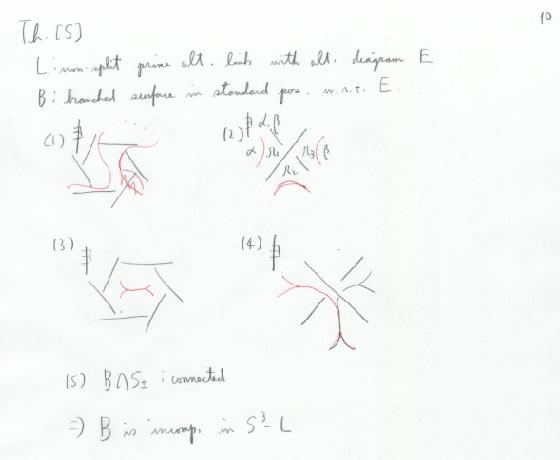 10
Th. [S]
L : non-split prime alt. link with alt. diagram E
B : branched surface in standard pos. w.r.t. E.
(1) ∄
(2) ∄ α, β
α r₁ r₂ r₃ β
(3) ∄
(4) ∄
(5) B ∩ S± : connected
⇒ B is incomp. in S³ - L